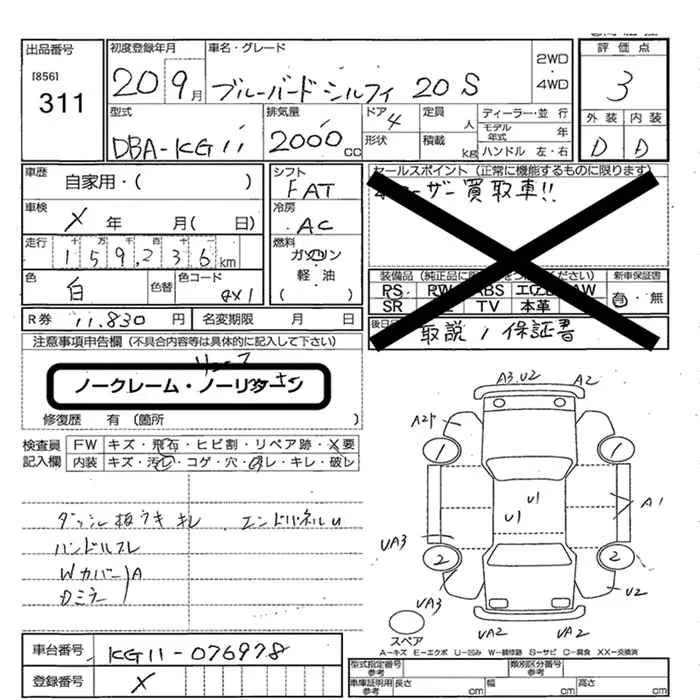 出品番号 初度登録年月 車名・グレード 評価点
[856]
311
20 9月 ブルーバードシルフィ 20S
2WD・4WD
3
型式 排気量 ドア 4 定員 人 ディーラー・並 行
外装 内装
DBA-KG11 2000cc 形状 積載 kg モデル年式 年
ハンドル 左・右
D D
車歴 自家用・( )
シフト FAT
セールスポイント (正常に機能するものに限ります)
ーザー買取車!!
車検 X 年 月( 日)
冷房 AC
走行 十 万 千 百 十
159,236km
燃料 ガソリン
軽・油
( )
色 白 色替 色コード QX1
装備品 (純正品に ください) 新車保証書
PS PW ABS エアB AW
SR TV 本革
有・無
R券 11,830円 名変期限 月 日
後日
取説 / 保証書
注意事項申告欄 (不具合内容等は具体的に記入して下さい)
ノークレーム・ノーリターン
修復歴 有 (箇所 )
検査員記入欄
FW キズ・飛石・ヒビ割・リペア跡・X要
内装 キズ・汚レ・コゲ・穴・スレ・キレ・破レ
ダッシュ板ウキ キレ エンドパネルU
ハンドルスレ
Wカバー A
Dミラー
A3,U2 A2
A2
1 1
U1
U1
A1
UA3
2 2
UA3 U2
スペア
UA2 UA2
A-キズ E-エクボ U-凹ミ W-補修跡 S-サビ C-腐食 XX-交換済
車台番号 KG11-076978
登録番号 X
型式指定番号 参考 類別区分番号 参考
車庫証明用 参考 長さ cm 幅 cm 高さ cm